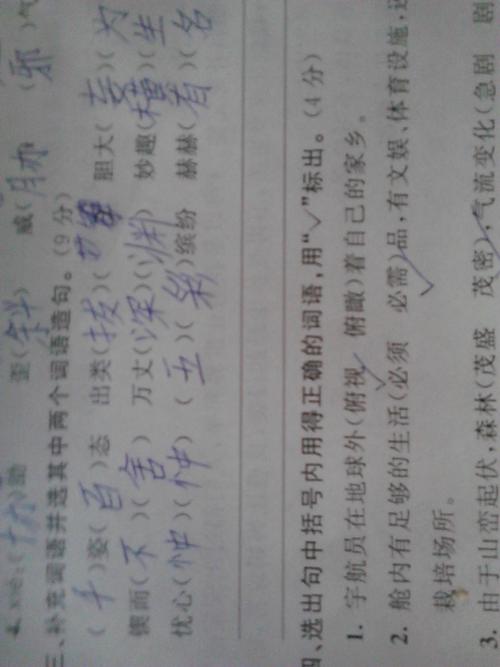 歪(斜) 威(胁) (邪)气
三、补充词语并选其中两个词语造句。(9分)
(千)姿(百)态 出类(拔)(萃) 胆大(妄)(为)
锲而(不)(舍) 万丈(深)(渊) 妙趣(横)(生)
忧心(忡)(忡) (五)(彩)缤纷 赫赫(有)(名)
四、选出句中括号内用得正确的词语,用“√”标出。(4分)
1. 宇航员在地球外(俯视√ 俯瞰)着自己的家乡。
2. 舱内有足够的生活(必须 必需√)品,有文娱、体育设施,还
栽培场所。
3. 由于山峦起伏,森林(茂盛 茂密√),气流变化(急剧 剧